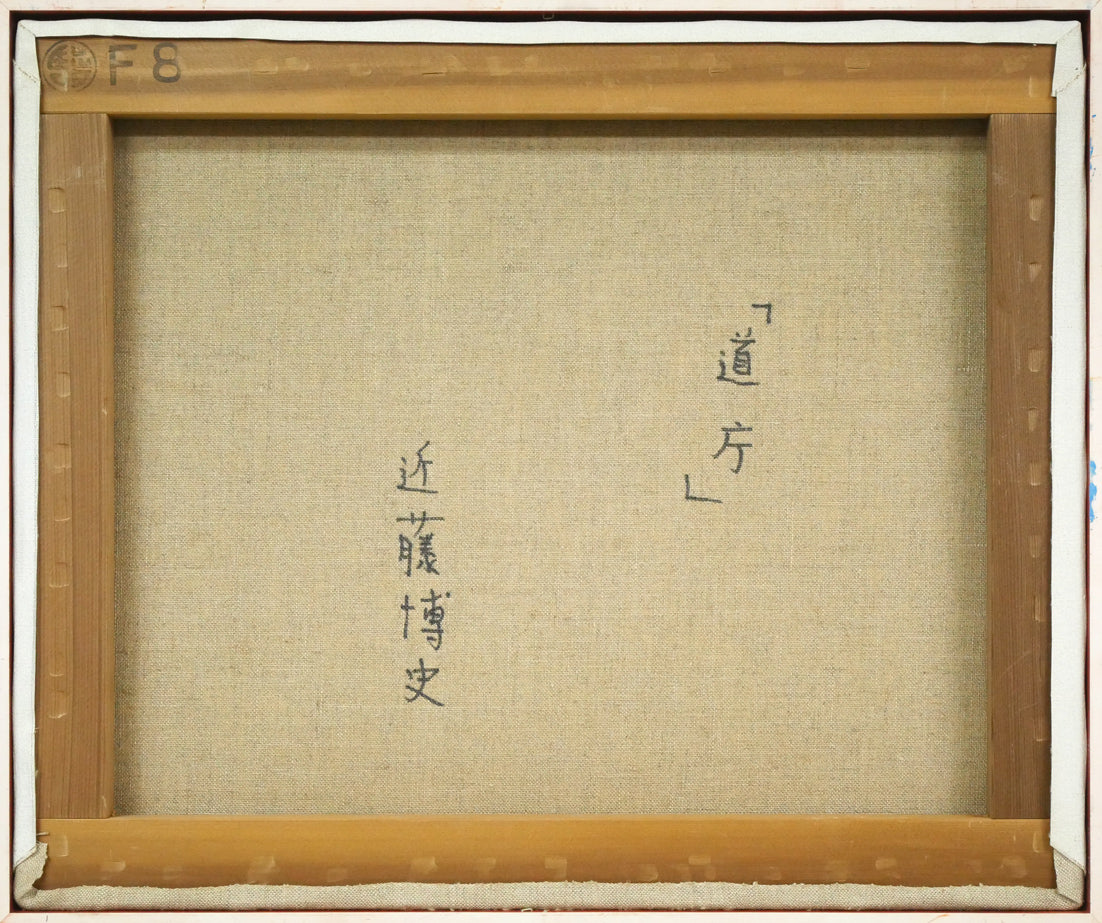 F8
「道庁」
近藤博史